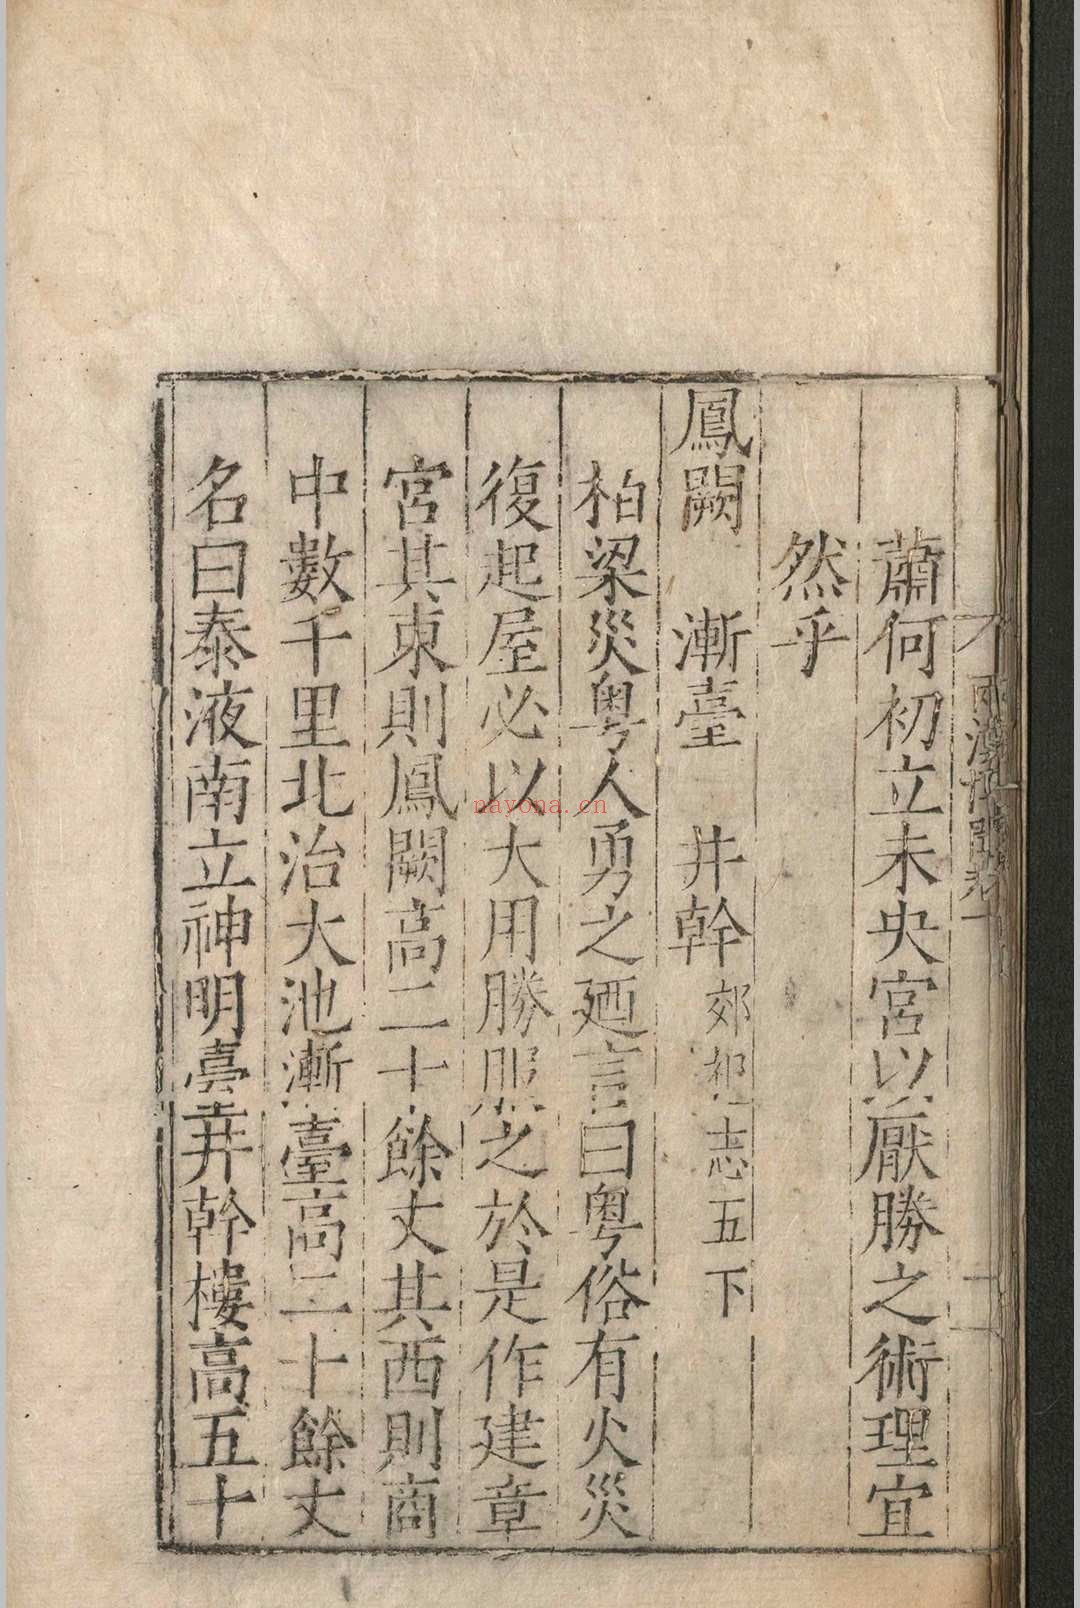 蕭何初立未央宮以厭勝之術理宜
然乎
鳳闕　漸臺　井幹 郊祀志五下
柏梁災粤人勇之廼言曰粤俗有火災
復起屋必以大用勝服之於是作建章
宮其東則鳳闕高二十餘丈其西則商
中數千里北治大池漸臺高二十餘丈
名曰泰液南立神明臺井幹樓高五十
nayona.cn